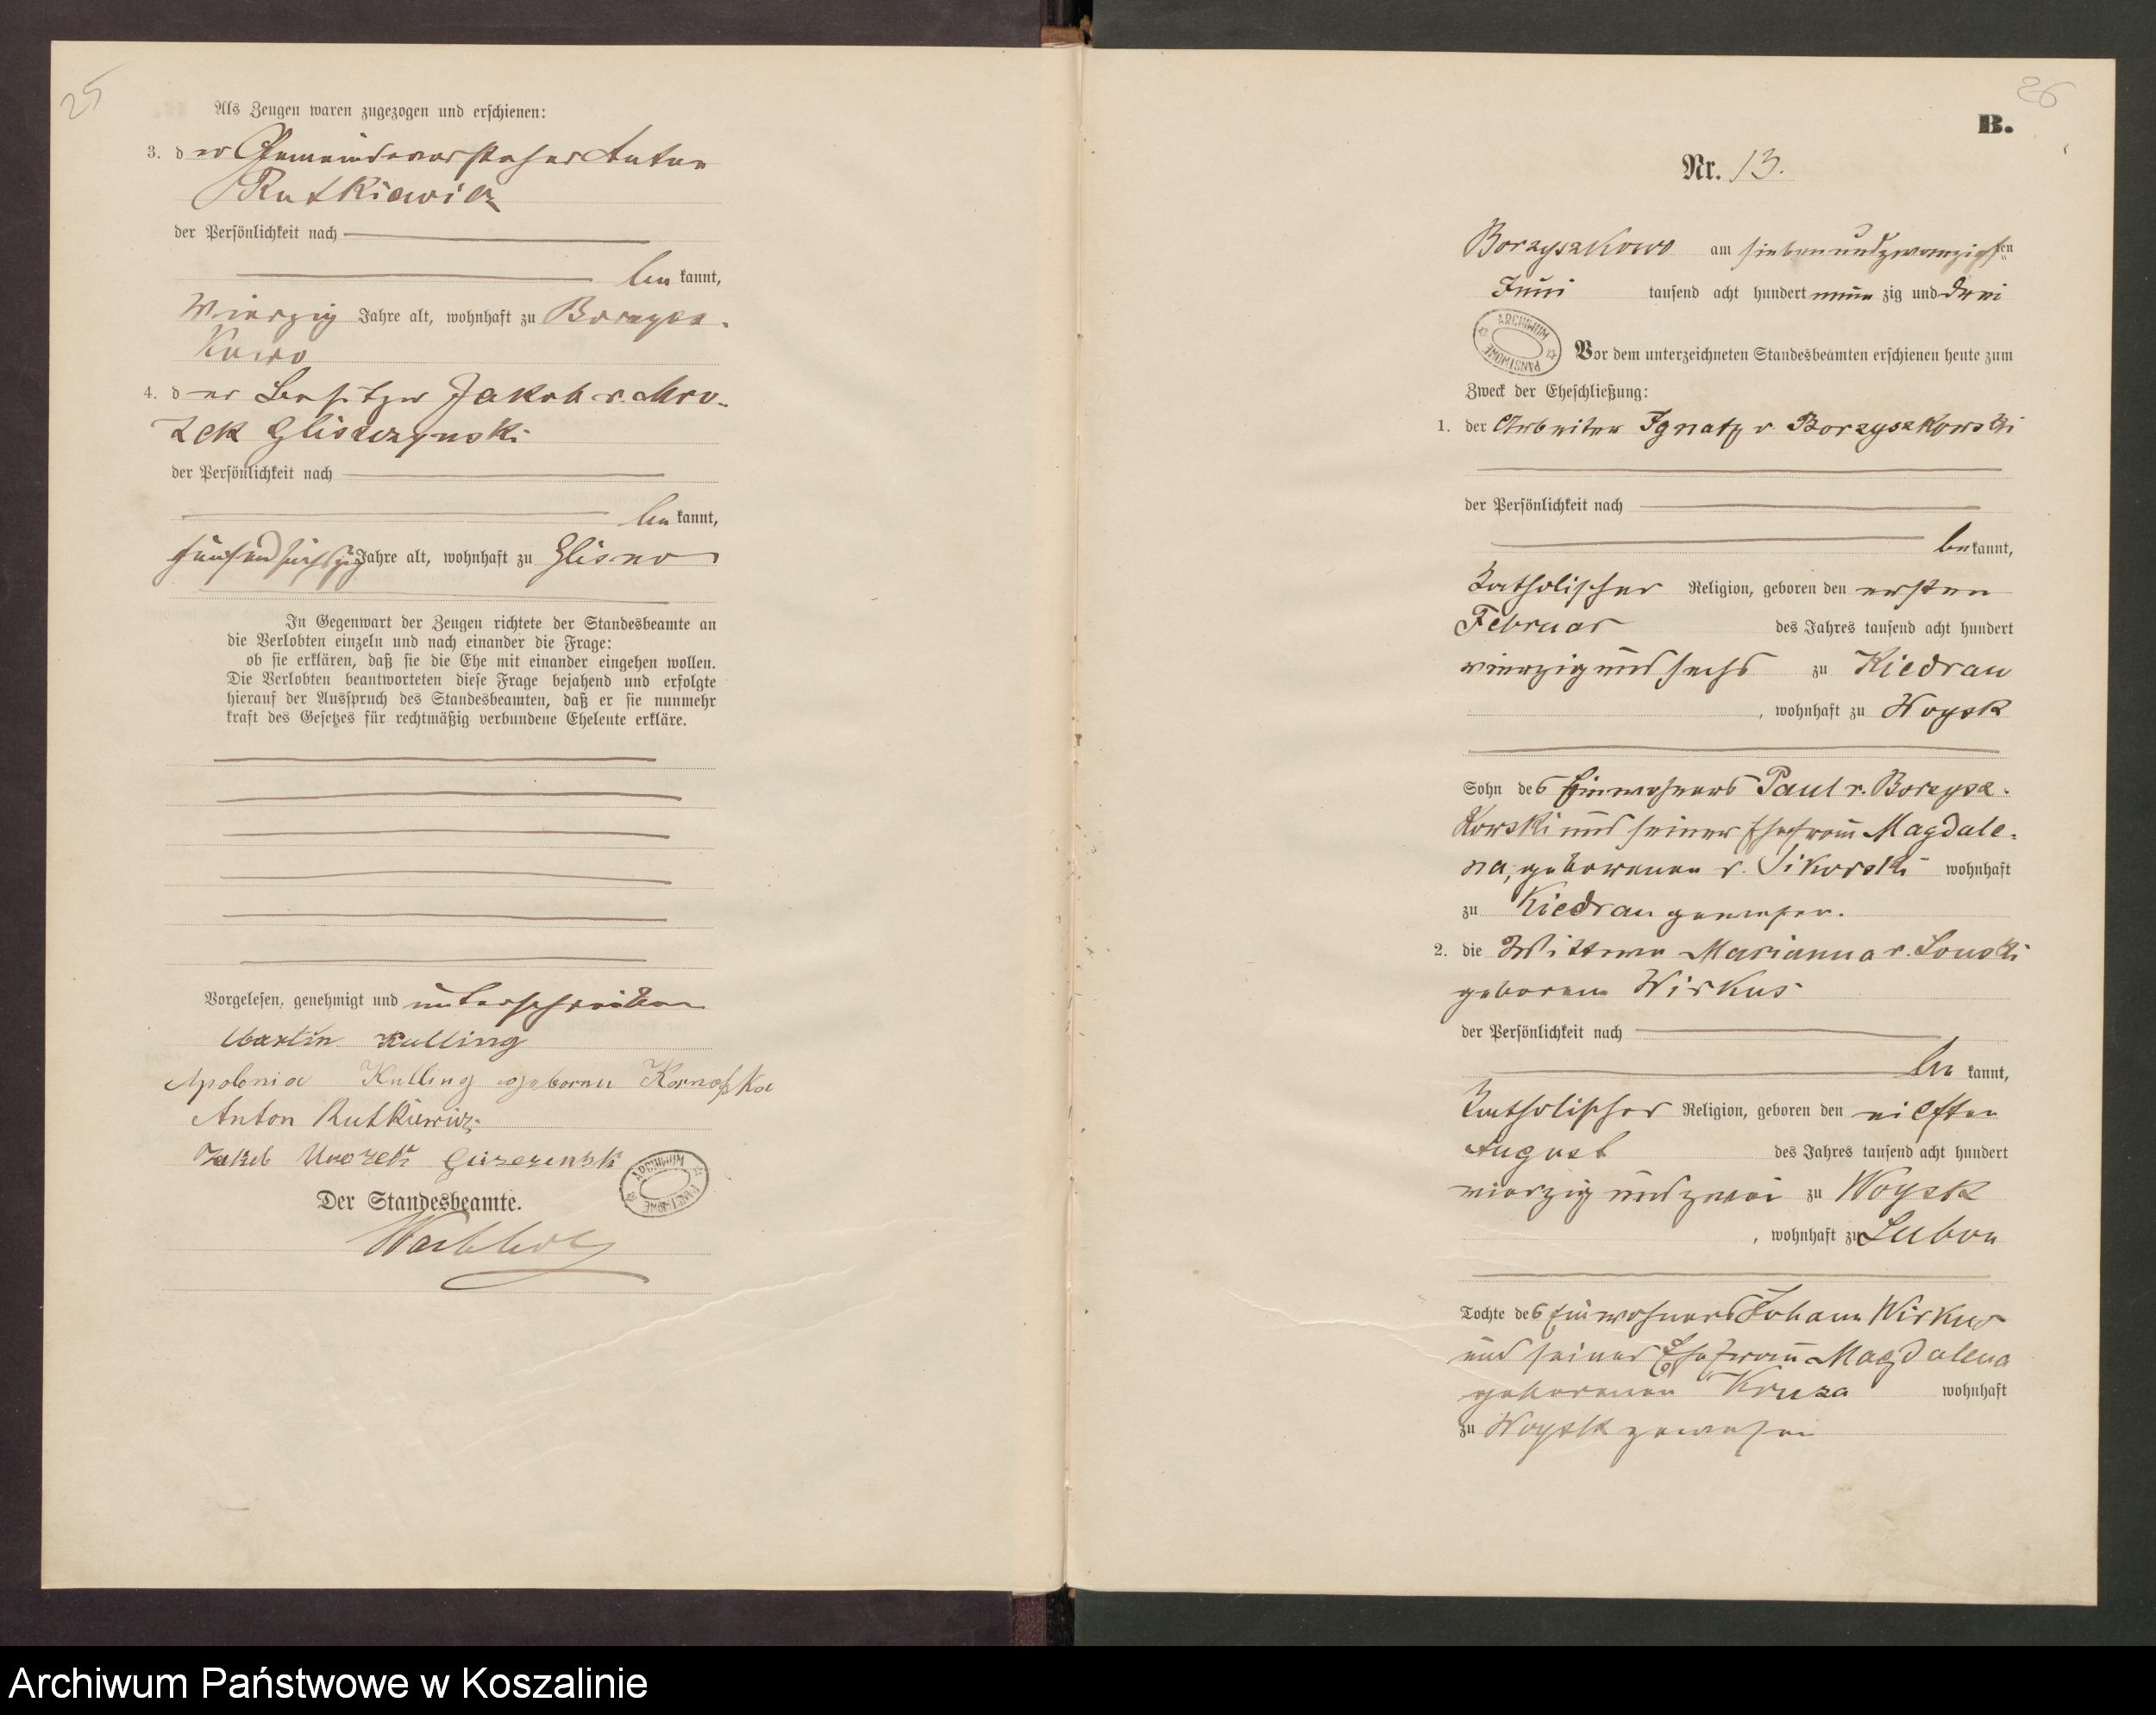 25
Als Zeugen waren zugezogen und erschienen:
3. der Gemeindevorsteher Anton
Rutkiewicz
der Persönlichkeit nach
bekannt,
vierzig Jahre alt, wohnhaft zu Borzysz-
kowo
4. der Besitzer Jakob v. Mro-
zek Gliszczynski
der Persönlichkeit nach
bekannt,
Jahre alt, wohnhaft zu Glisno
In Gegenwart der Zeugen richtete der Standesbeamte an
die Verlobten einzeln und nach einander die Frage:
ob sie erklären, daß sie die Ehe mit einander eingehen wollen.
Die Verlobten beantworteten diese Frage bejahend und erfolgte
hierauf der Ausspruch des Standesbeamten, daß er sie nunmehr
kraft des Gesetzes für rechtmäßig verbundene Eheleute erkläre.
Vorgelesen, genehmigt und unterschrieben
Martin Kulling
Apolonia Kulling geborne
Anton Rutkiewicz
Jakob Mrozek
ARCHIWUM PAŃSTWOWE
Der Standesbeamte.
26
B.
Nr. 13.
Borzyszkowo am siebenundzwanzigsten
Juni tausend acht hundert neunzig und drei
ARCHIWUM PAŃSTWOWE
Vor dem unterzeichneten Standesbeamten erschienen heute zum
Zweck der Eheschließung:
1. der Arbeiter Ignatz v Borzyszkowski
der Persönlichkeit nach
bekannt,
katholischer Religion, geboren den ersten
Februar des Jahres tausend acht hundert
vierzig und sechs zu Kiedrau
, wohnhaft zu Woysk
Sohn des Einwohners Paul v. Borzysz-
kowski und seiner Ehefrau Magdale-
na, geborenen v. Sikorski wohnhaft
zu Kiedrau gewesen.
2. die Wittwe Marianna v. Lonski
geborene Wirkus
der Persönlichkeit nach
bekannt,
katholischer Religion, geboren den eilften
August des Jahres tausend acht hundert
vierzig und zwei zu Woysk
, wohnhaft zu Lubon
Tochte des Einwohners Johann Wirkus
und seiner Ehefrau Magdalena
geborenen Kruza wohnhaft
zu Woysk gewesen
Archiwum Państwowe w Koszalinie